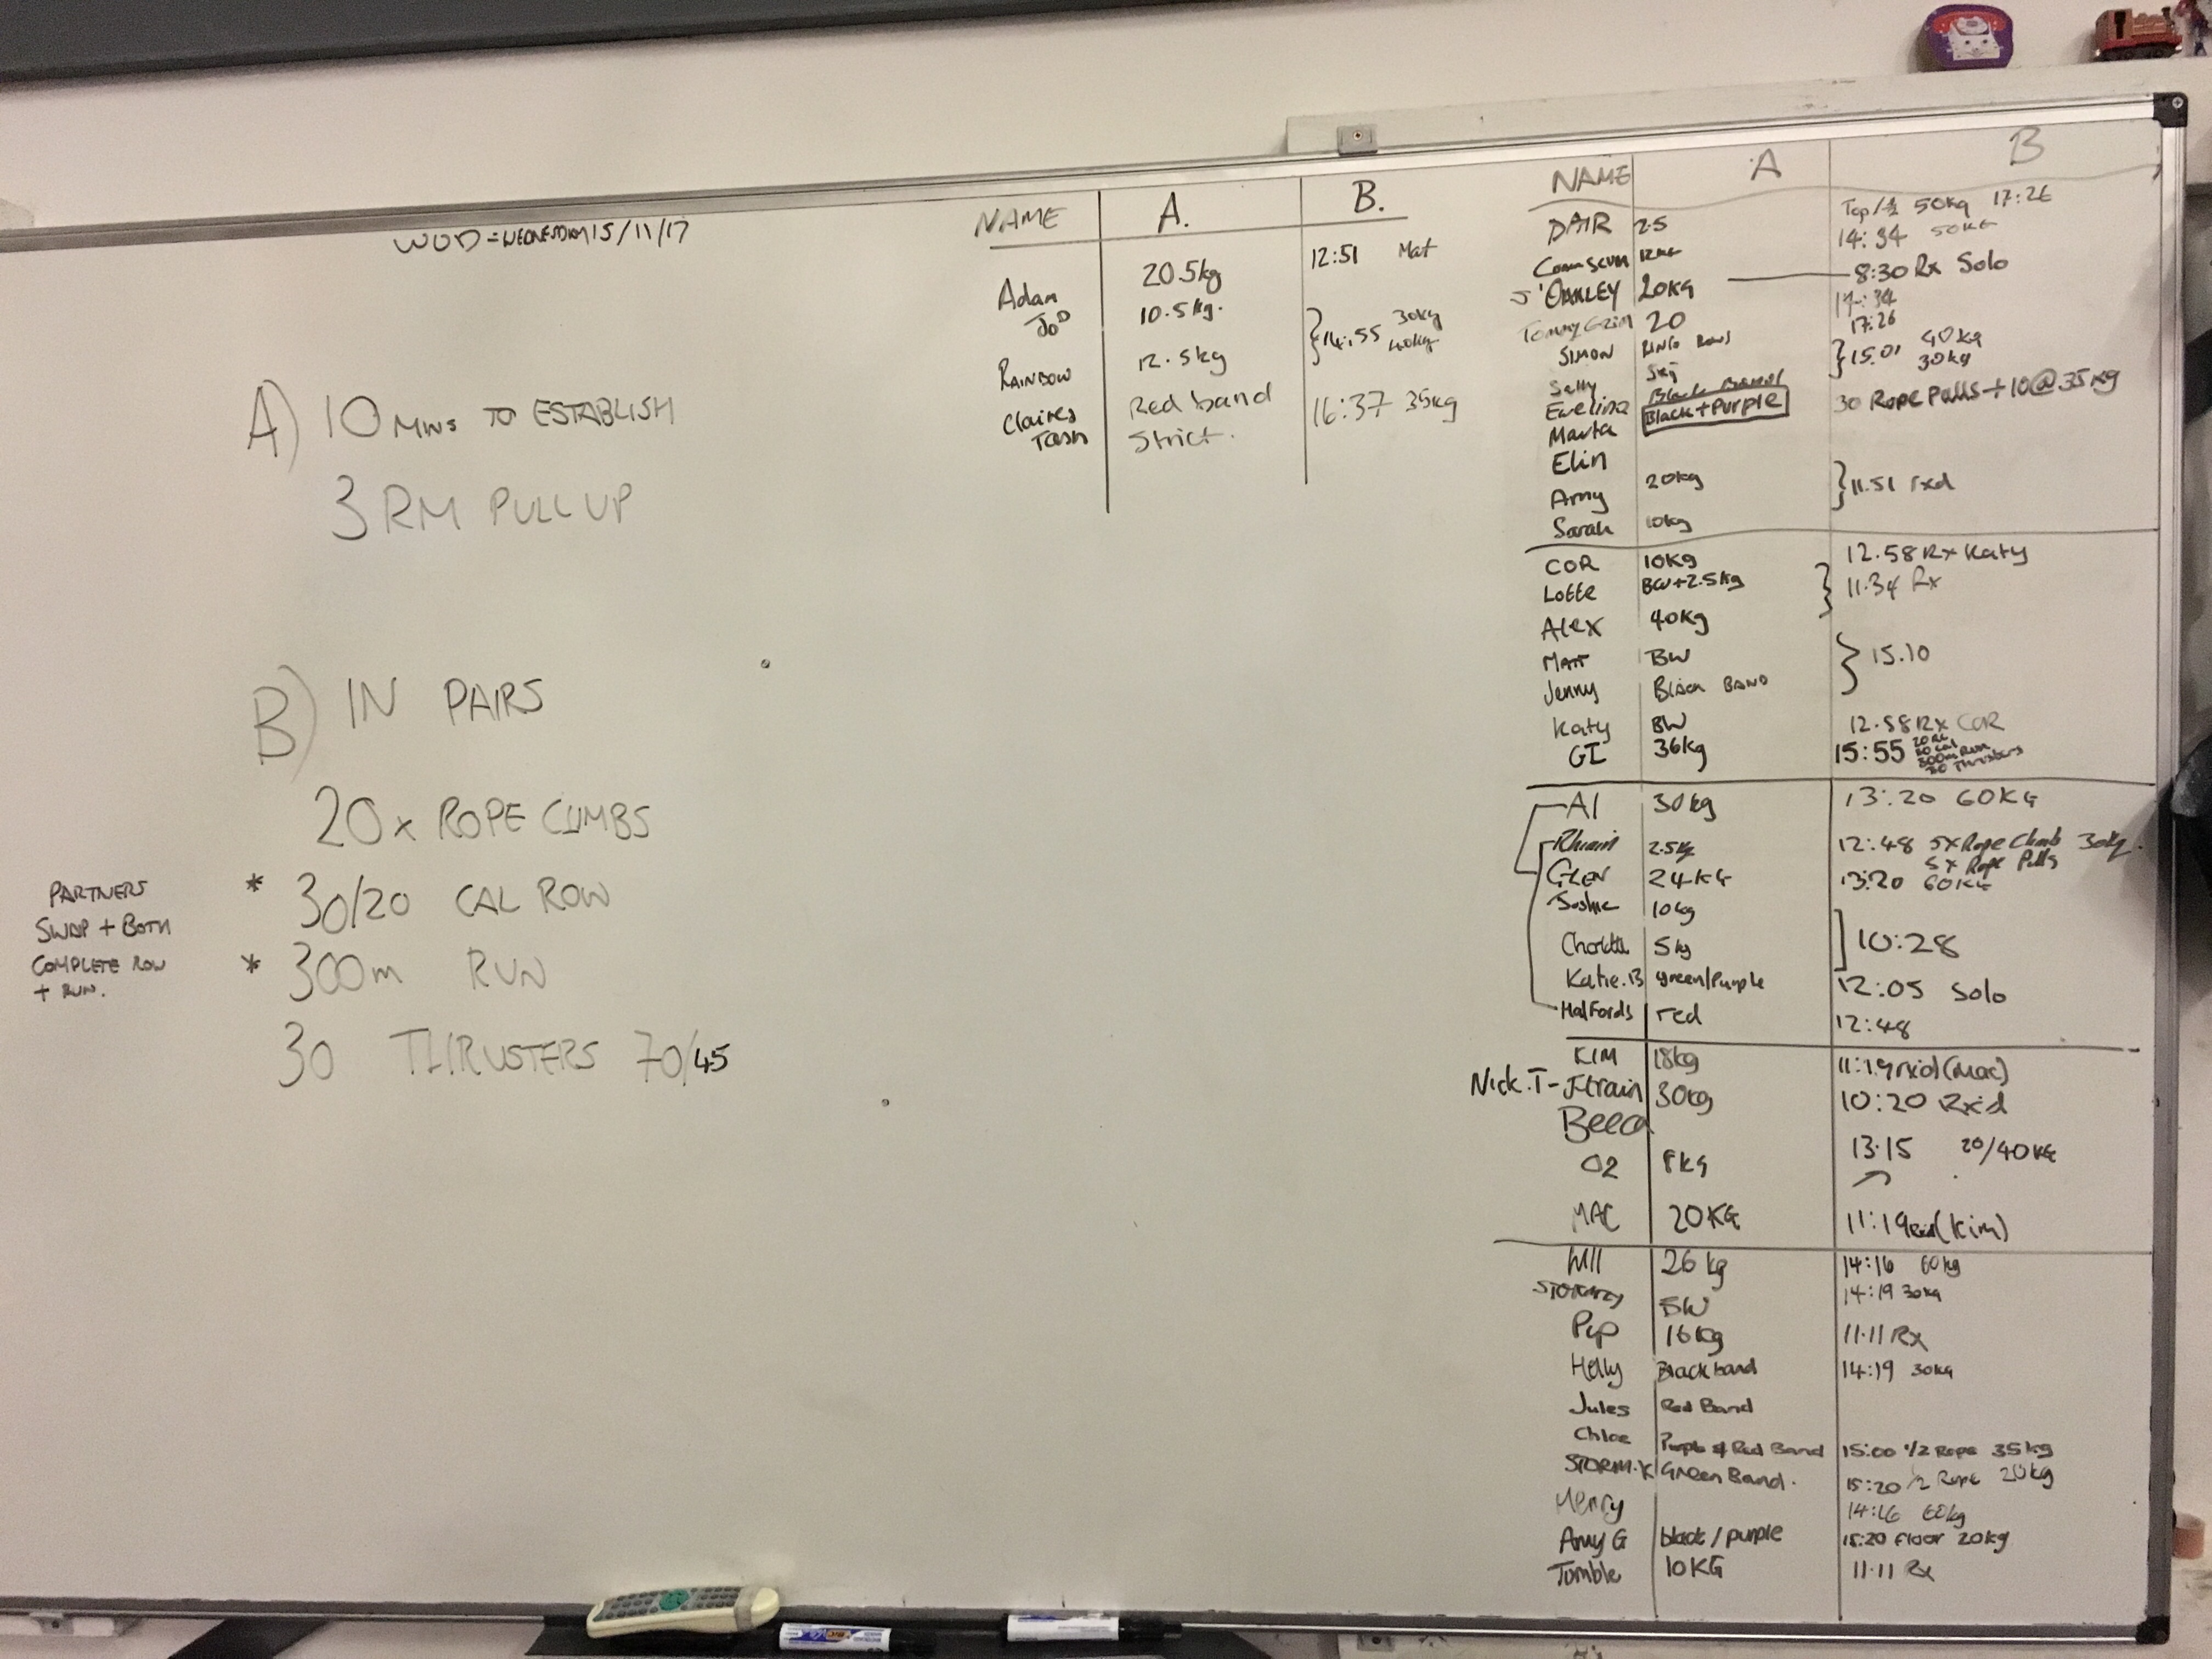 WOD = WEDNESDAY 15/11/17
A) 10 MINS TO ESTABLISH
3 RM PULL UP
B) IN PAIRS
20 x ROPE CLIMBS
* 30/20 CAL ROW
* 300m RUN
30 THRUSTERS 70/45
PARTNERS
SWAP + BOTH
COMPLETE ROW
+ RUN.
NAME A. B.
12:51 Mat
Adam 20.5kg
JoD 10.5kg.
} 14:55 30kg
40kg
RAINBOW 12.5kg
Claires Red band 16:37 35kg
Tash Strict.
NAME A B
Top/½ 50kg 17:26
DAIR 2.5 14:34 50KG
J'OAKLEY 20KG 8:30 Rx Solo
20 14:34
17:26
SIMON RING ROWS
} 15.01 40kg
30kg
Sally 5kg
Evelina Black Band
Marta Black + Purple 30 Rope Pulls + 10 @ 35kg
Elin
Amy 20kg } 11.51 rxd
Sarah 10kg
COR 10KG 12.58 Rx Katy
Lotte BW+2.5kg } 11.34 Rx
Alex 40kg
MATT BW } 15.10
Jenny Black BAND
Katy BW 12.58 Rx COR
GI 36kg 15:55 20 RC
30 Cal
300m Run
30 Thrusters
Al 30kg 13:20 60KG
Rhian 2.5kg 12:48 5x Rope Climb 30kg.
5x Rope Pulls
GLEN 24KG 13:20 60KG
10kg
5kg ] 10:28
Katie.B green/Purple 12:05 Solo
Halfords red 12:48
KIM 18kg 11:19 rxd (Mac)
Nick.T - J-train 30kg 10:20 Rx'd
Beea
O2 8KG 13:15 20/40KG
MAC 20KG 11:19 Rxd (Kim)
Will 26kg 14:16 60kg
BW 14:19 30KG
Pip 16kg 11.11 Rx
Holly Black band 14:19 30KG
Jules Red Band
Chloe Purple & Red Band 15:00 1/2 Rope 35kg
STORM.K Green Band. 15:20 1/2 Rope 20kg
Henry 14:16 60kg
Amy G black/purple 15:20 Floor 20kg
Tumble 10KG 11.11 Rx